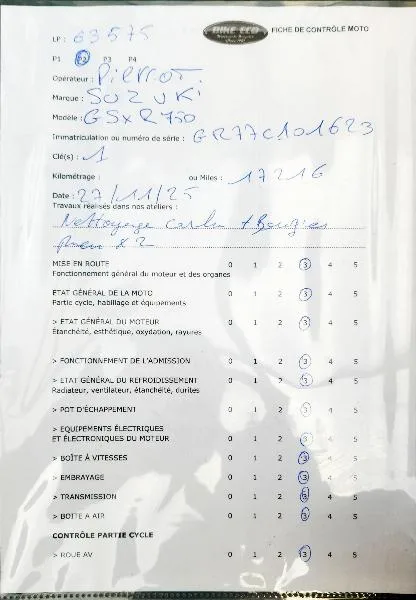 BIKE ECO
FICHE DE CONTRÔLE MOTO
LP : 63575
P1 P2 P3 P4
Opérateur : Pierrot.
Marque : SUZUKI
Modèle : GSxR750
Immatriculation ou numéro de série : GR77C101623
Clé(s) : 1
Kilométrage : ou Miles : 17216
Date : 27/11/25
Travaux réalisés dans nos ateliers :
Nettoyage carbu + Bougies
pneu x2
MISE EN ROUTE 0 1 2 3 4 5
Fonctionnement général du moteur et des organes
ETAT GÉNÉRAL DE LA MOTO 0 1 2 3 4 5
Partie cycle, habillage et équipements
> ETAT GÉNÉRAL DU MOTEUR 0 1 2 3 4 5
Étanchéité, esthétique, oxydation, rayures
> FONCTIONNEMENT DE L'ADMISSION 0 1 2 3 4 5
> ETAT GÉNÉRAL DU REFROIDISSEMENT 0 1 2 3 4 5
Radiateur, ventilateur, étanchéité, durites
> POT D'ÉCHAPPEMENT 0 1 2 3 4 5
> EQUIPEMENTS ÉLECTRIQUES
ET ÉLECTRONIQUES DU MOTEUR 0 1 2 3 4 5
> BOÎTE À VITESSES 0 1 2 3 4 5
> EMBRAYAGE 0 1 2 3 4 5
> TRANSMISSION 0 1 2 3 4 5
> BOITE A AIR 0 1 2 3 4 5
CONTRÔLE PARTIE CYCLE
> ROUE AV 0 1 2 3 4 5